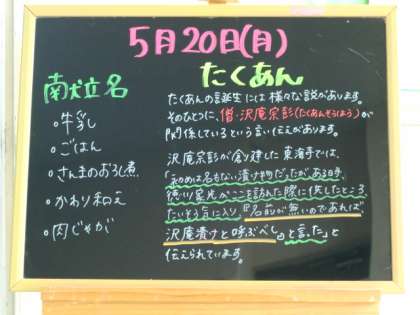 5月20日(月)
献立名
・牛乳
・ごはん
・さんまのおろし煮
・かわり和え
・肉じゃが
たくあん
たくあんの誕生には様々な説があります。
そのひとつに、僧・沢庵宗彭(たくあんそうほう)が
関係しているという言い伝えがあります。
沢庵宗彭が創建した東海寺では、
「初めは名もない漬け物だったが、ある時、
徳川家光がここを訪れた際に供したところ、
たいそう気に入り、『名前が無いのであれば
沢庵漬けと呼ぶべし』と言った」と
伝えられています。